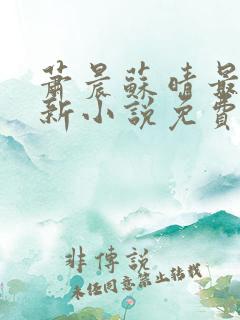 蕭晨蘇晴最
新小說免費
非傳說
未經同意禁止轉載